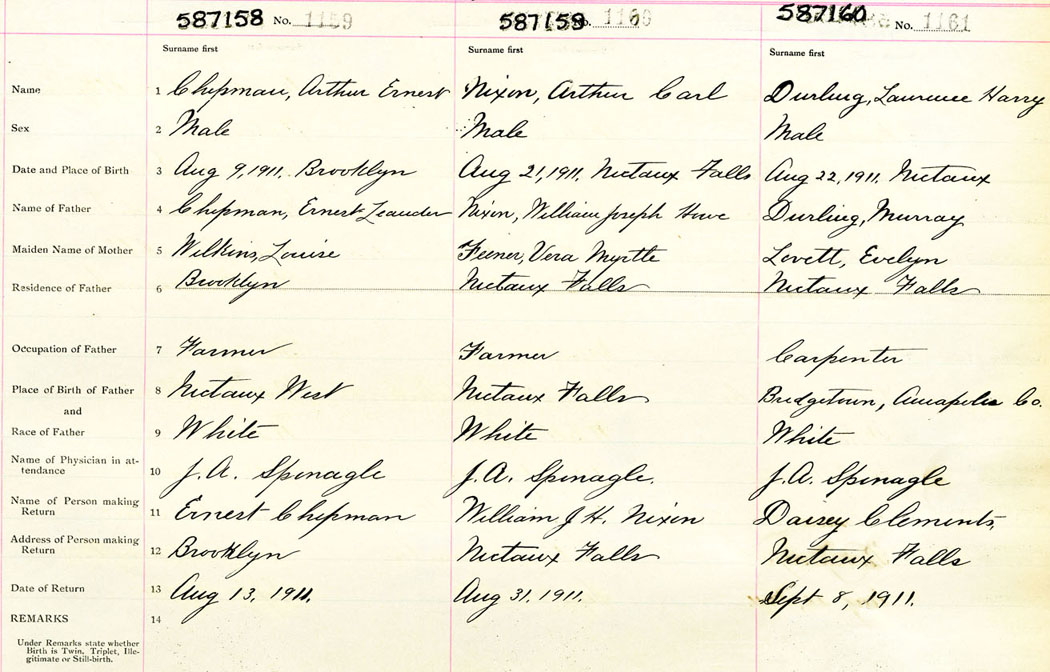 587158 No. 1159 587159 No. 1160 587160 No. 1161
Surname first Surname first Surname first
Name 1 Chipman, Arthur Ernest Nixon, Arthur Carl Durling, Laurence Harry
Sex 2 Male Male Male
Date and Place of Birth 3 Aug 9, 1911. Brooklyn Aug 21, 1911. Nictaux Falls Aug 22, 1911. Nictaux
Name of Father 4 Chipman, Ernest Leander Nixon, William Joseph Howe Durling, Murray
Maiden Name of Mother 5 Wilkins, Louise Feener, Vera Myrtle Lovett, Evelyn
Residence of Father 6 Brooklyn Nictaux Falls Nictaux Falls
Occupation of Father 7 Farmer Farmer Carpenter
Place of Birth of Father 8 Nictaux West Nictaux Falls Bridgetown, Annapolis Co.
and
Race of Father 9 White White White
Name of Physician in at-
tendance 10 J. A. Sponagle J. A. Sponagle. J. A. Sponagle
Name of Person making
Return 11 Ernest Chipman William J. H. Nixon Daisey Clements,
Address of Person making
Return 12 Brooklyn Nictaux Falls Nictaux Falls
Date of Return 13 Aug 13, 1911. Aug 31, 1911. Sept 8, 1911.
REMARKS 14
Under Remarks state whether
Birth is Twin, Triplet, Ille-
gitimate or Still-birth.